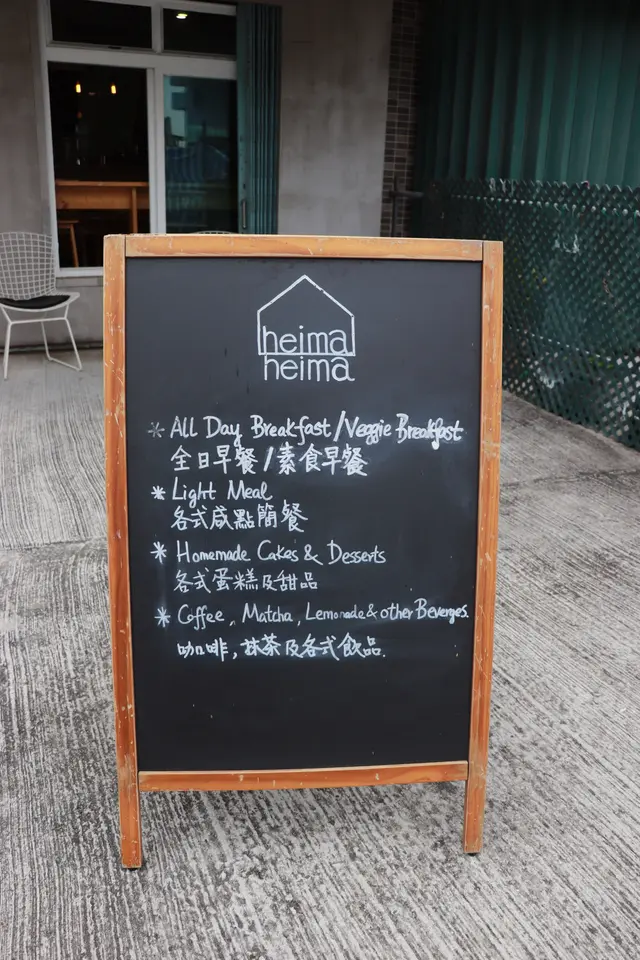 heima
heima
* All Day Breakfast/Veggie Breakfast
全日早餐/素食早餐
* Light Meal
各式咸點簡餐
* Homemade Cakes & Desserts
各式蛋糕及甜品
* Coffee, Matcha, Lemonade & other Beverges.
咖啡,抹茶及各式飲品.